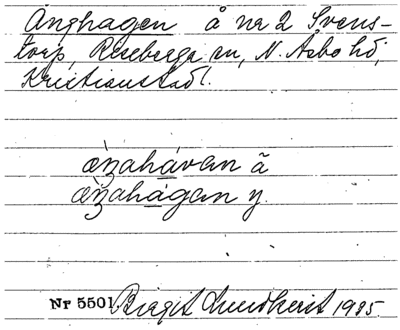 Änghagen å nr 2 Svens-
torp, Riseberga sn, N. Åsbo hd,
Kristianstad l.
æ̀ŋahávan ã
æ̀ŋahágan y.
Nr 5501 Birgit Lundkvist 1985